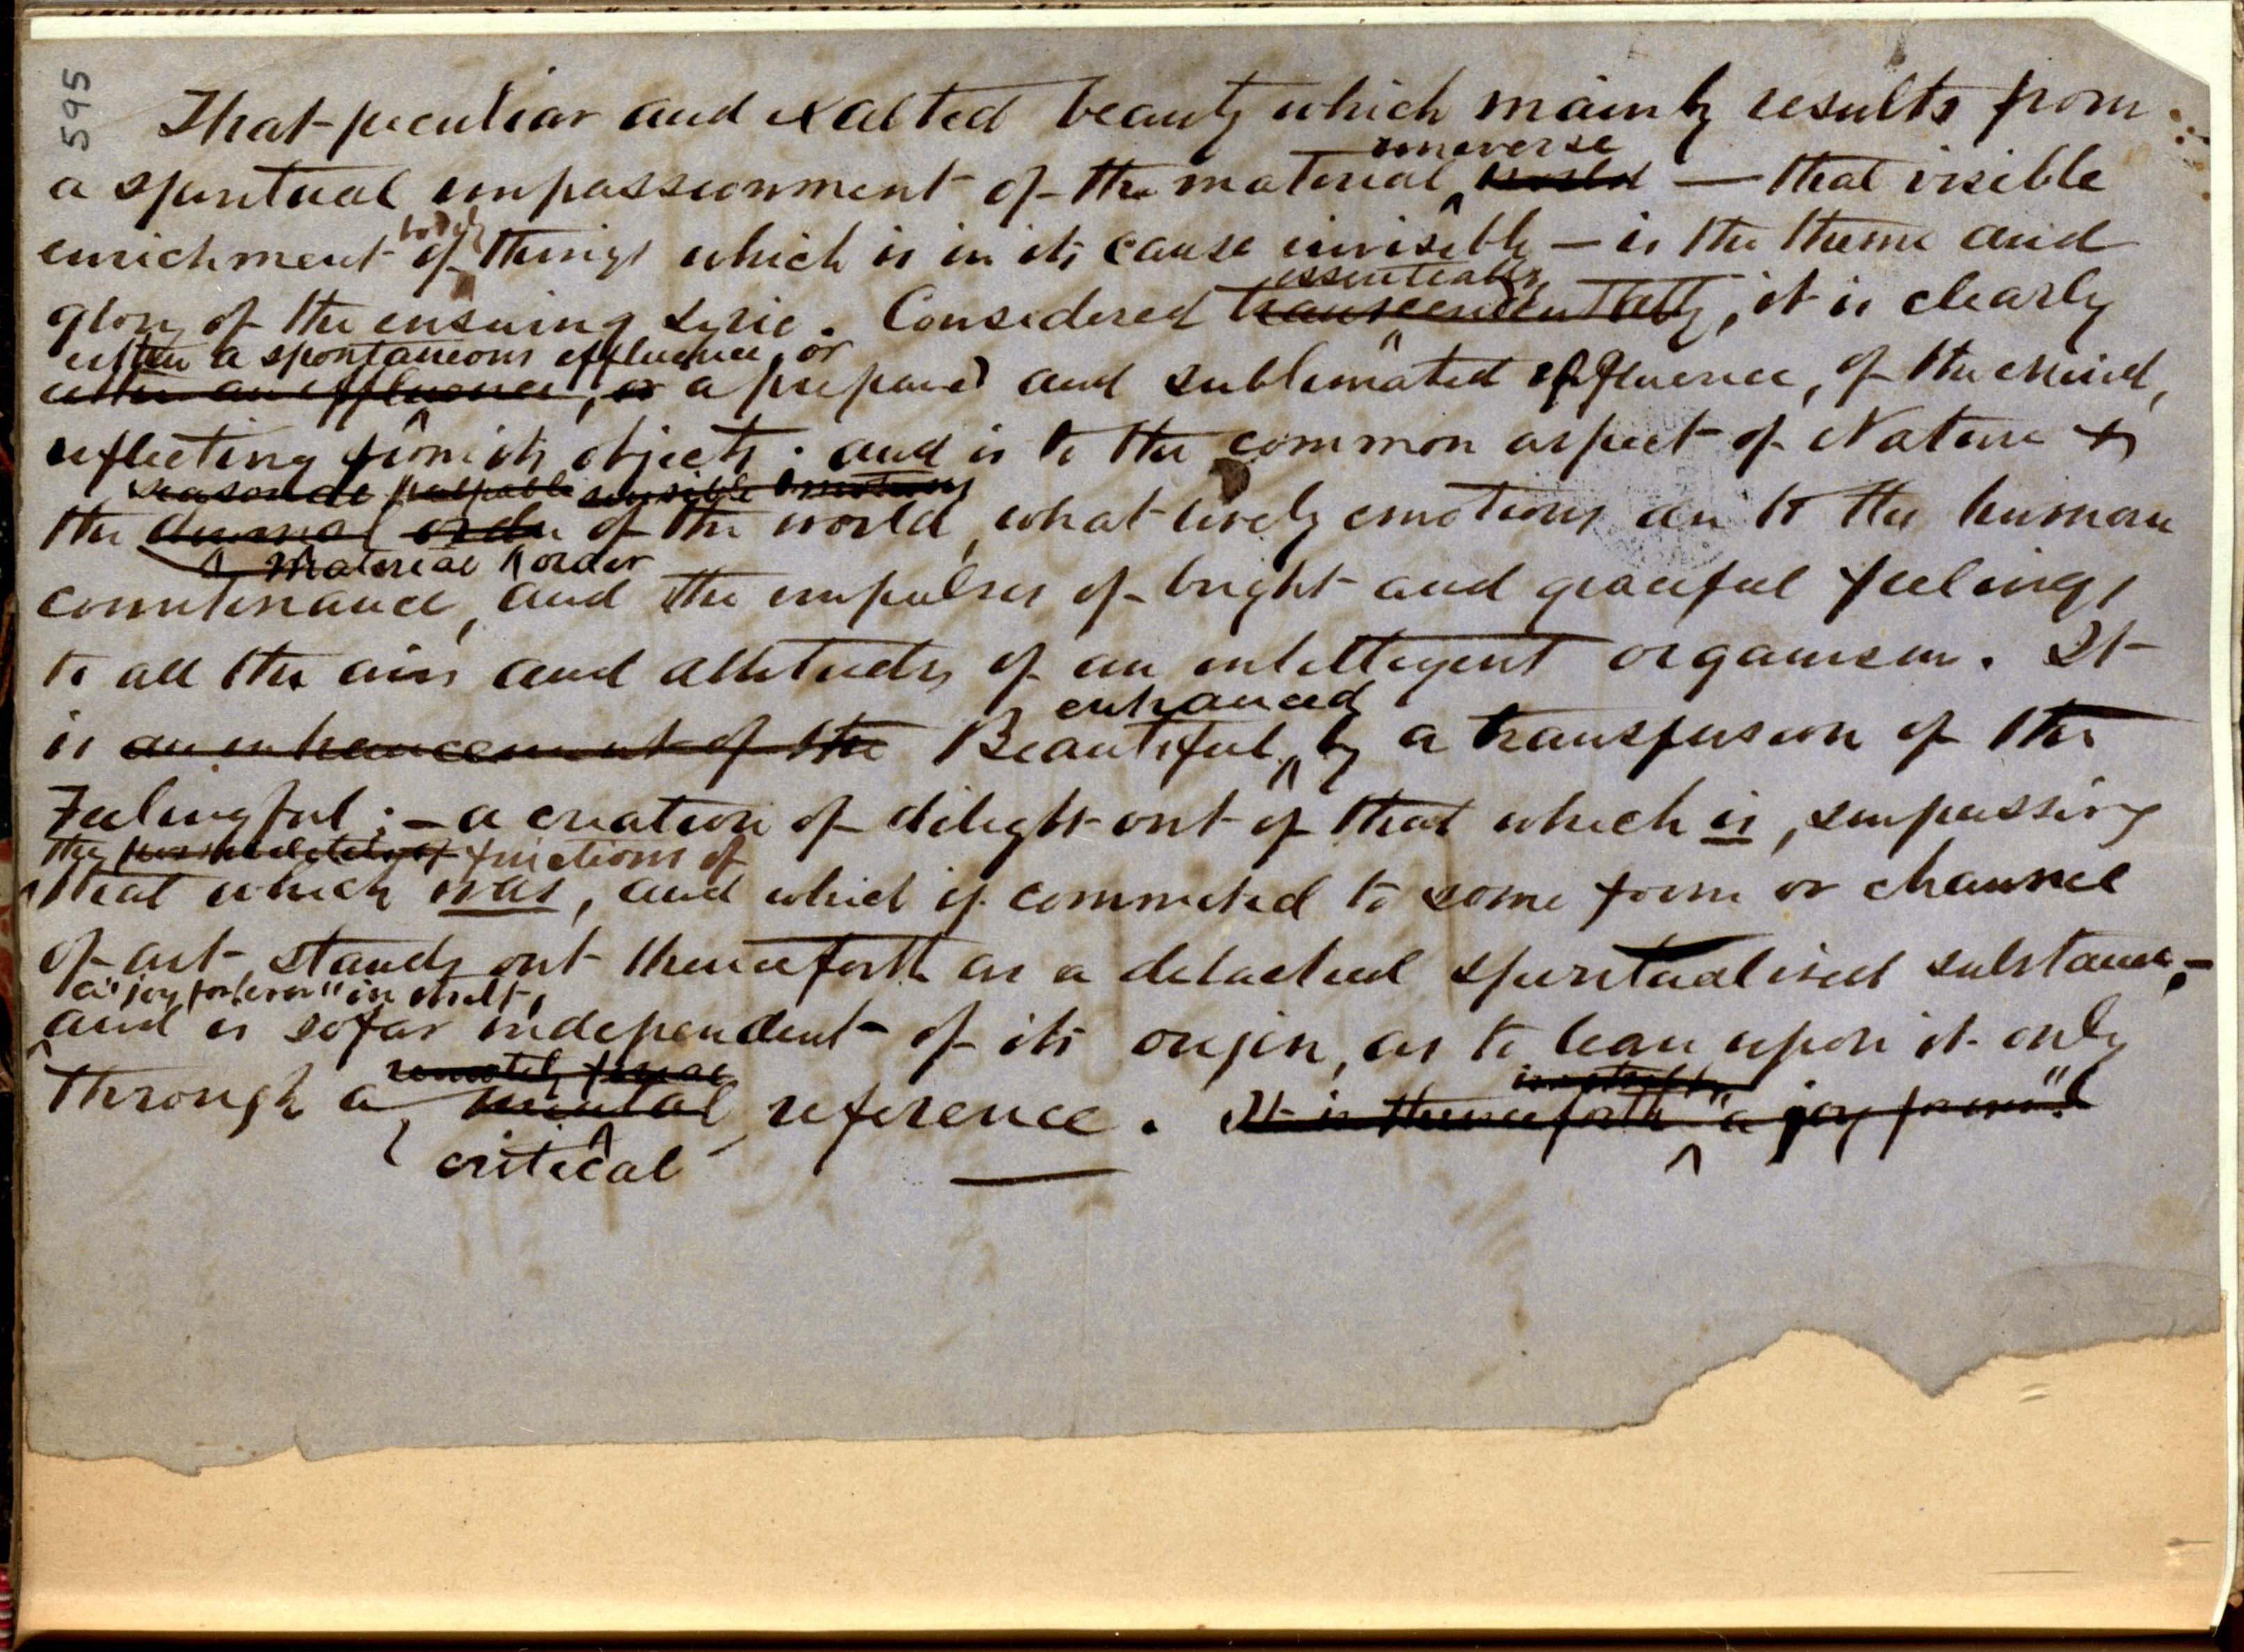 595
That peculiar and exalted beauty which mainly results from
universe
a spiritual impassionment of the material world — that visible
body
enrichment of things which is in its cause invisible — is the theme and
essentially
glory of the ensuing Lyric. Considered transcendentally, it is clearly
either a spontaneous effluence, or
either an effluence, or a prepared and sublimated effluence, of the mind,
reflecting from its objects: and is to the common aspect of Nature &
seasonal palpable sensible emotions
the diurnal order of the world, what lively emotions are to the human
material order
countenance, and the impulses of bright and graceful feelings
to all the airs and attitudes of an intelligent organism. It
enhanced
is an enhancement of the Beautiful by a transfusion of the
Feelingful; — a creation of delight out of that which is, surpassing
the functions of
that which was, and which if committed to some form or channel
of art, stands out thenceforth as a detached spiritualised substance, —
a "joy forever" in itself,
and is so far independent of its origin, as to lean upon it only
remotely
through a mental reference. It is thenceforth "a joy forever"!
critical